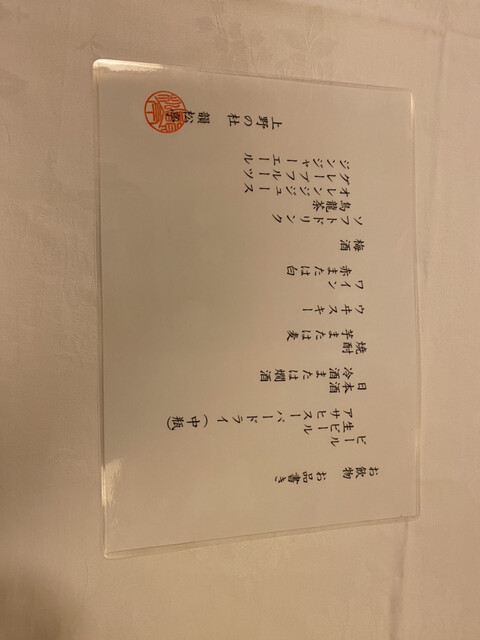 お飲物 お品書き
ビール
生ビール
アサヒスーパードライ(中瓶)
日本酒
冷酒または燗酒
焼酎
芋または麦
ウヰスキー
ワイン
赤または白
梅酒
ソフトドリンク
烏龍茶
オレンジジュース
グレープフルーツ
ジンジャーエール
上野の杜
韻松亭